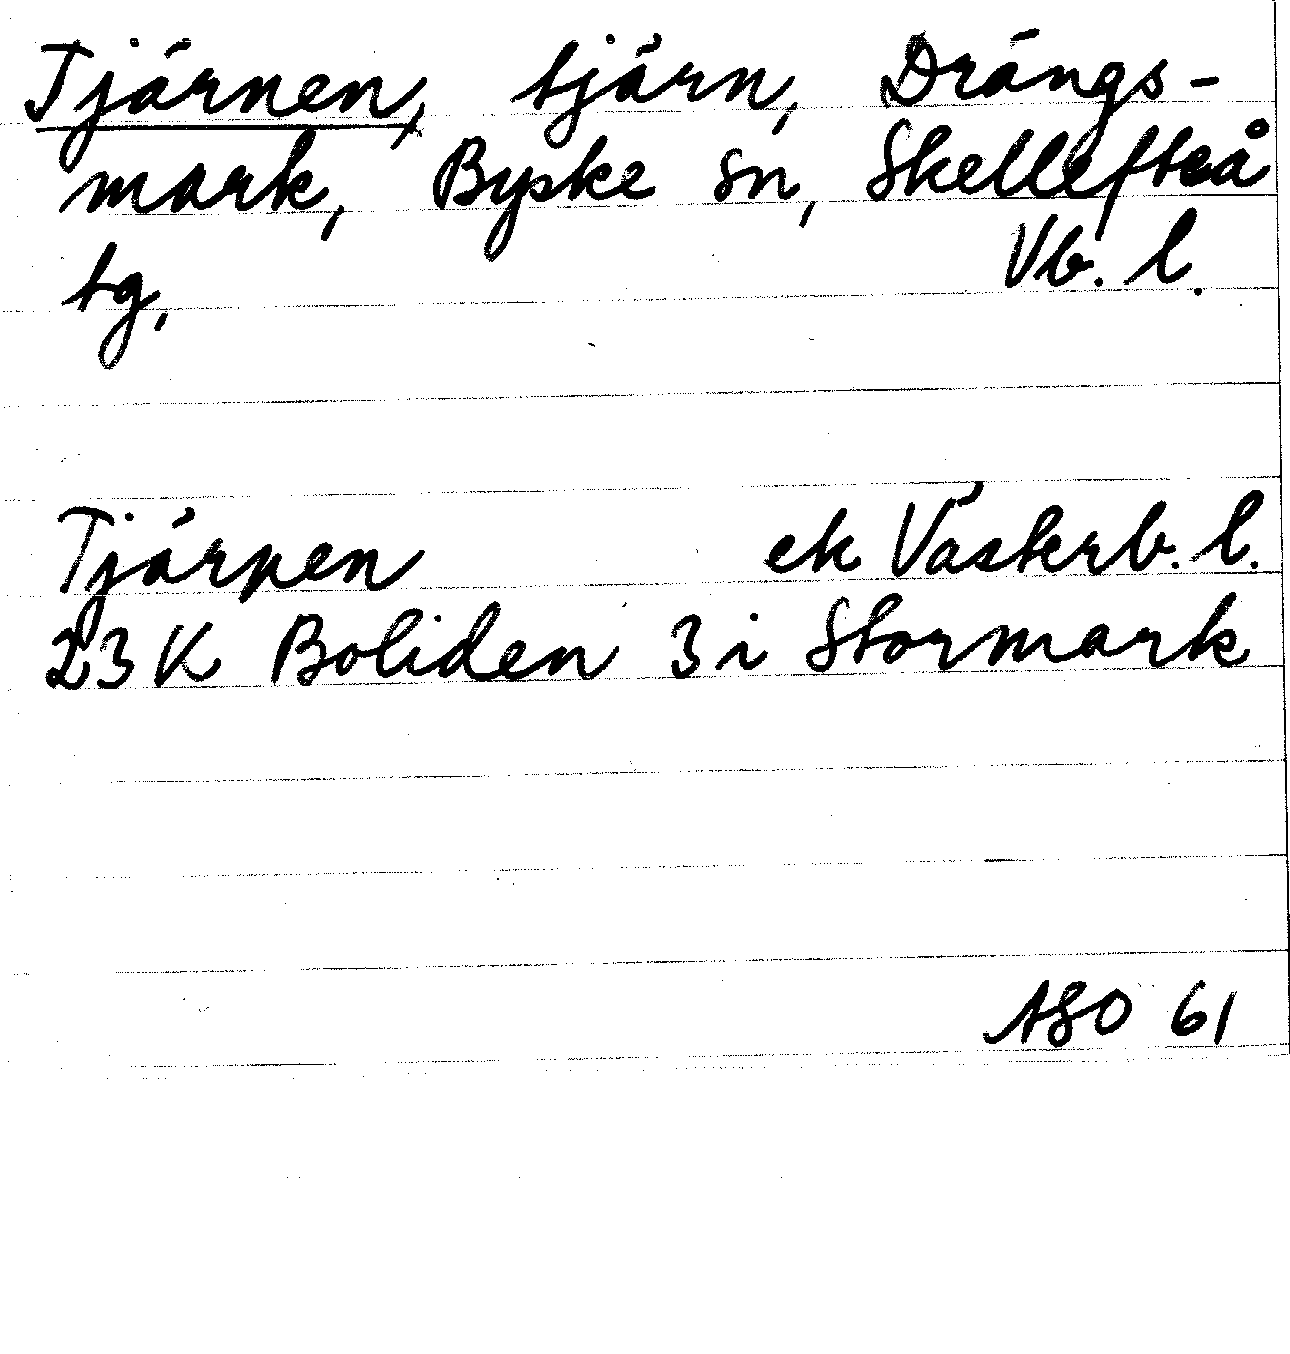 Tjärnen, tjärn, Drängs-
mark, Byske sn, Skellefteå
tg, Vb. l.
Tjärnen ek Västerb. l.
23 K Boliden 3 i Stormark
ASO 61